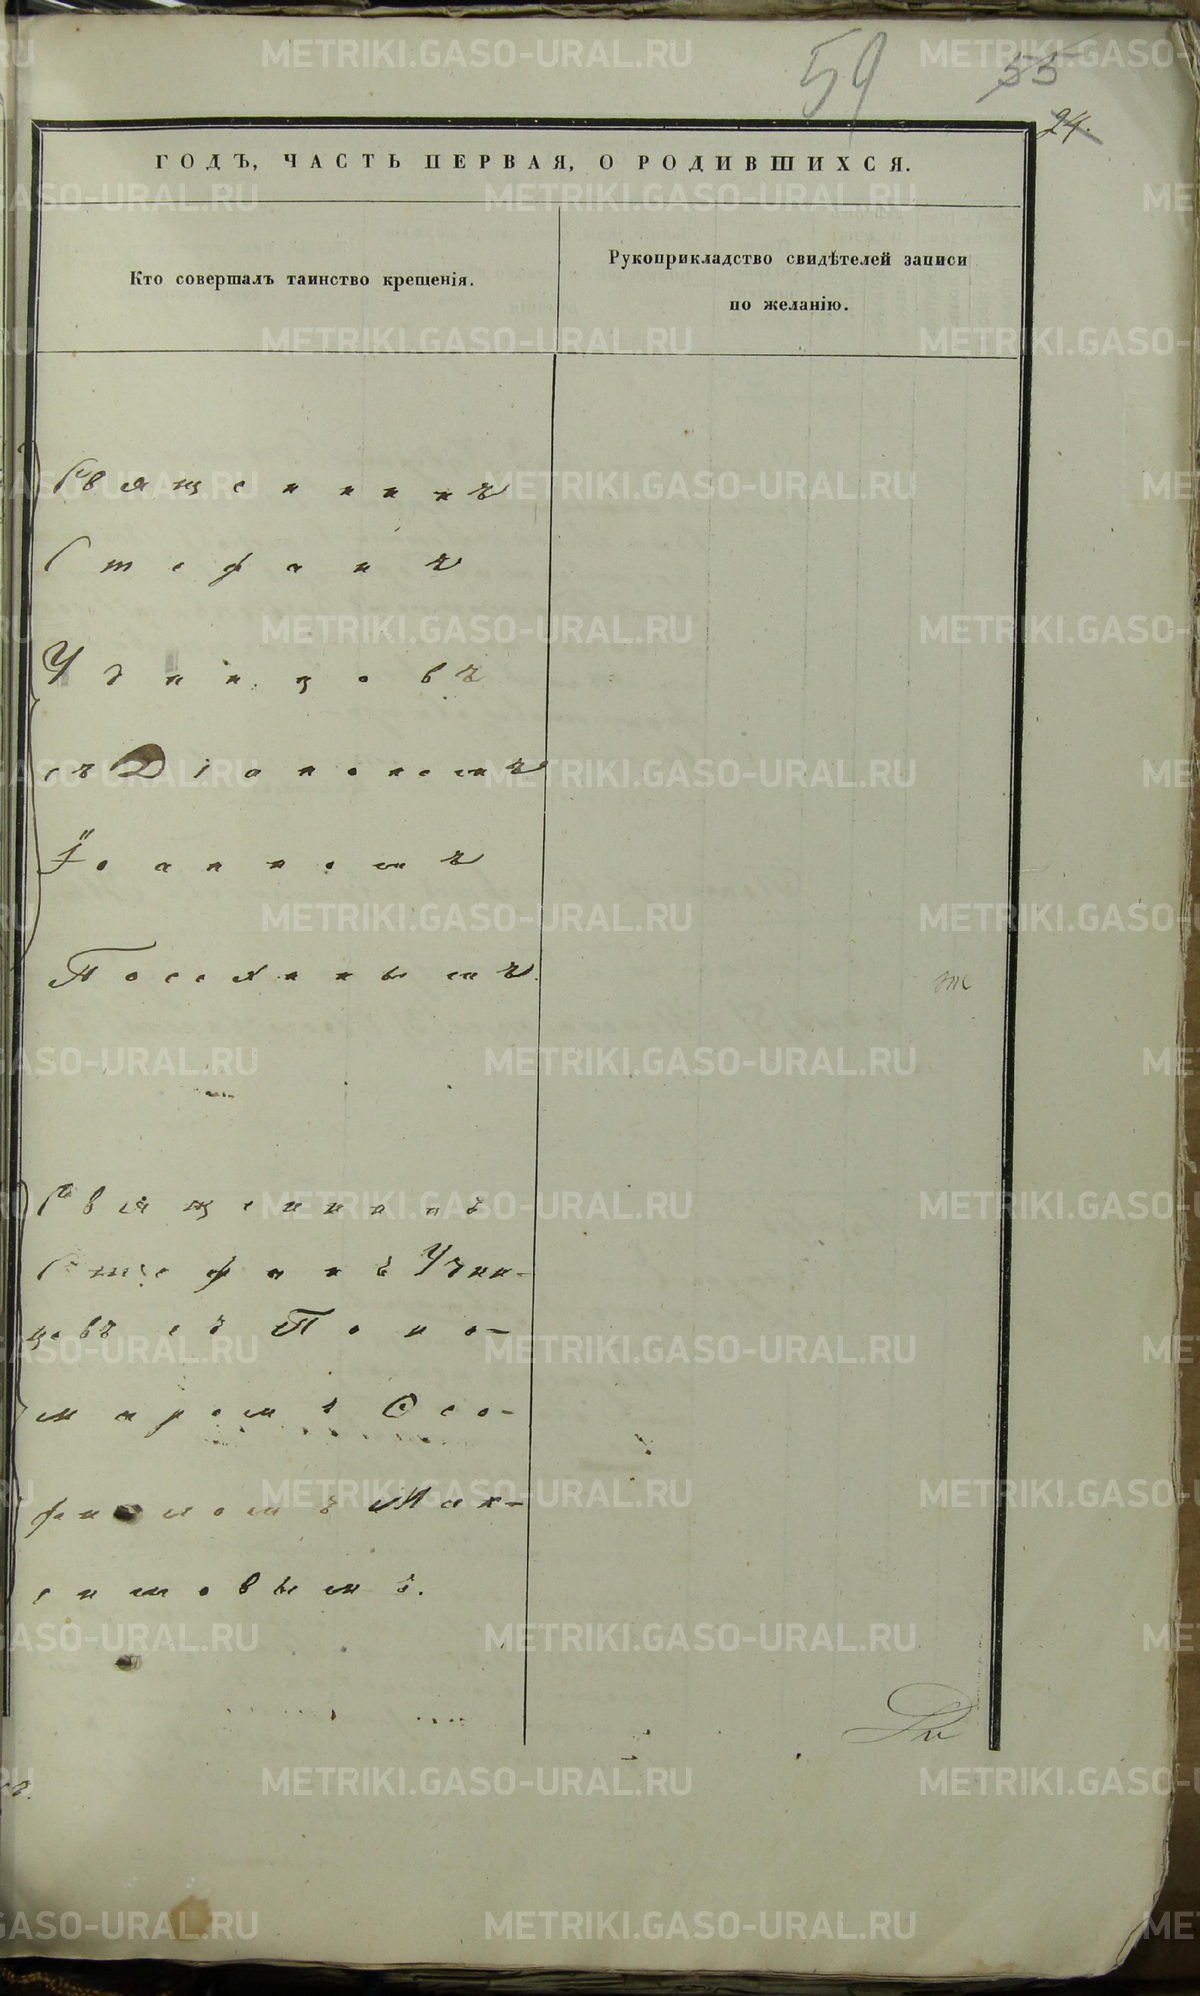 59 55
24.
ГОДЪ, ЧАСТЬ ПЕРВАЯ, О РОДИВШИХСЯ.
Кто совершалъ таинство крещенія.
Рукоприкладство свидѣтелей записи
по желанію.
Священникъ
Стефанъ
Удинцовъ
съ Діакономъ
Іоанномъ
Топорковымъ
Священникъ
Стефанъ Удин-
цовъ съ Поно-
маремъ Ѳео-
филомъ Мак-
симовымъ.
METRIKI.GASO-URAL.RU